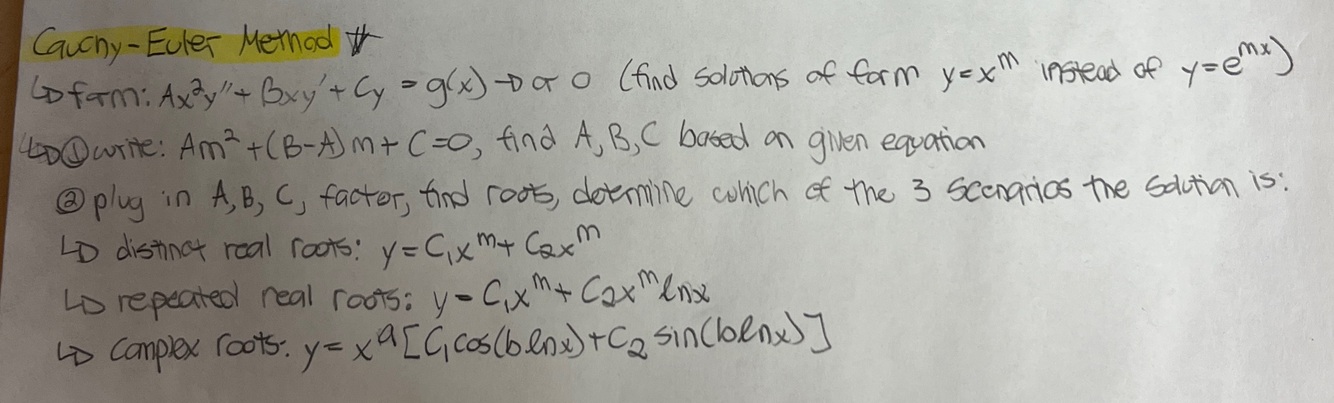 Cauchy-Euler Method *
↳ form: Ax²y'' + Bxy' + Cy = g(x) → or 0 (find solutions of form y=x^m instead of y=e^mx)
↳ ① write: Am² + (B-A)m + C = 0, find A, B, C based on given equation
② plug in A, B, C, factor, find roots, determine which of the 3 scenarios the solution is:
↳ distinct real roots: y = C₁x^m + C₂x^m
↳ repeated real roots: y = C₁x^m + C₂x^m lnx
↳ complex roots: y = x^a [C₁cos(b lnx) + C₂ sin(b lnx)]